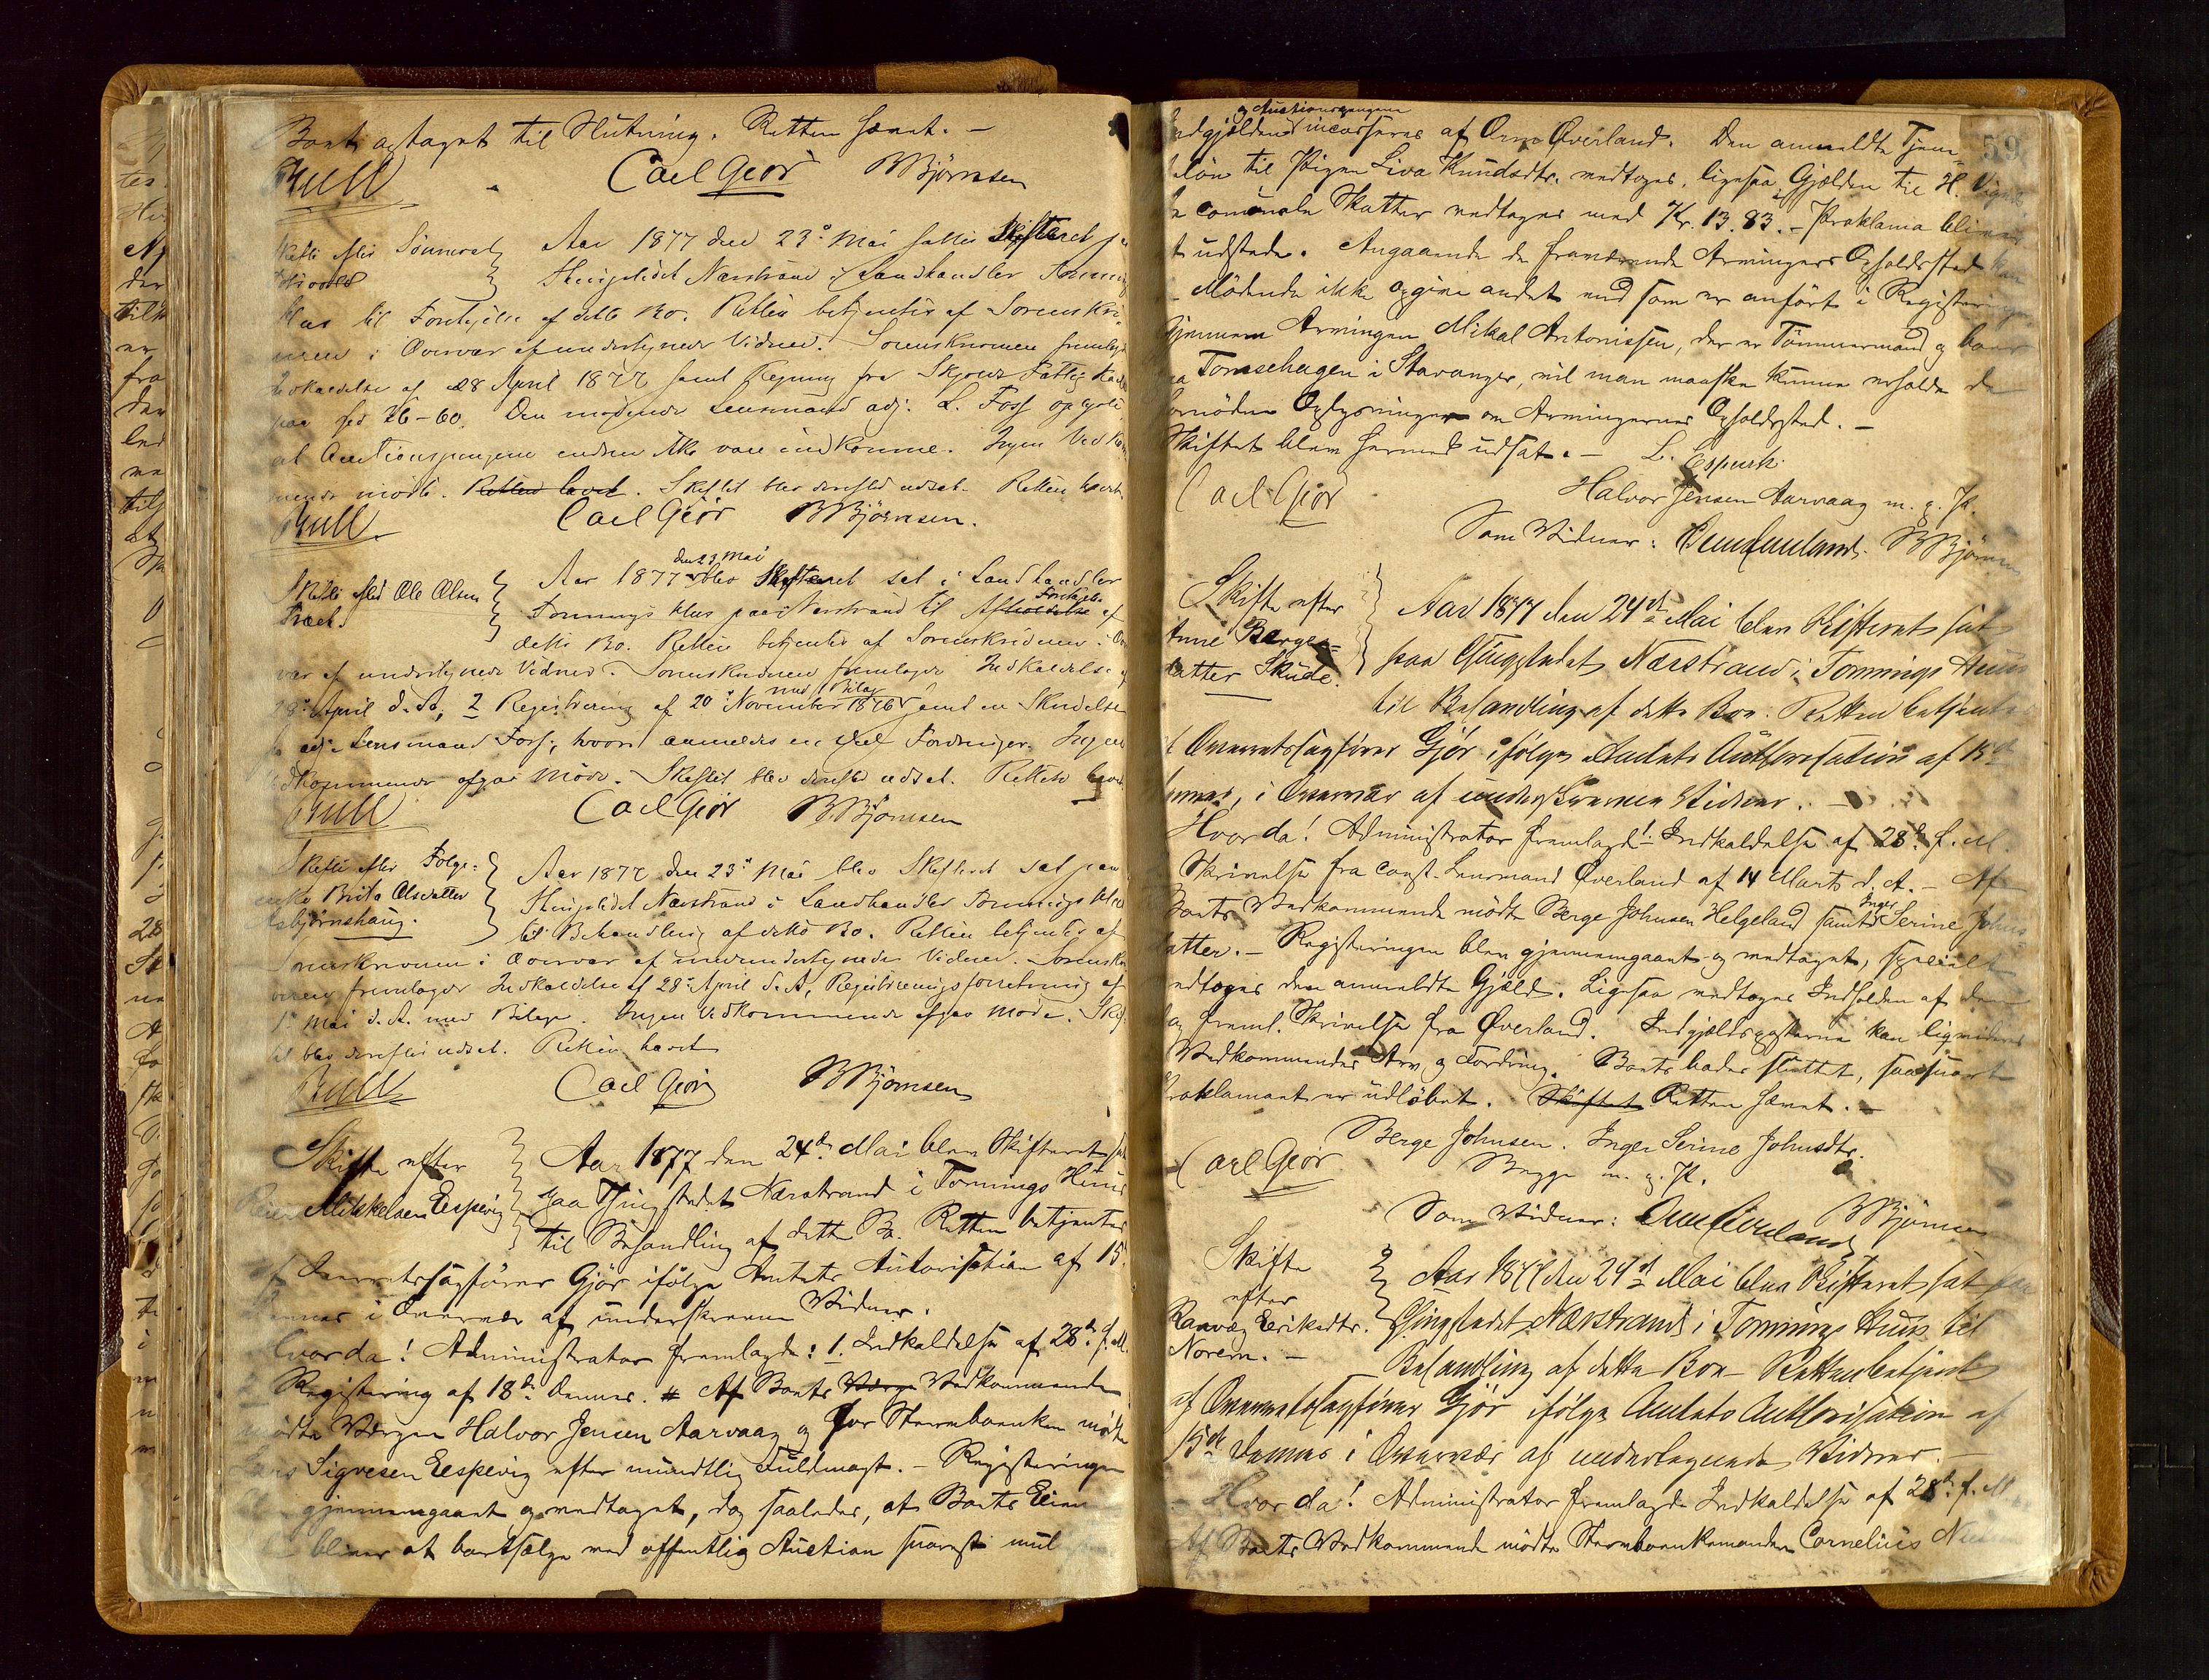 Boet optaget til Slutning. Retten hævet. —
Bull Carl Giør BBjørnsen
Skifte efter Aar 1877 den 23de Mai sattes Skifteret
Thingstedet Nærstrand i Landhandler
Hus til Foretagelse af dette Bo. Retten betjentes af Sorenskri-
veren i Overvær af undertegnede Vidner. Sorenskriveren fremlagde
Indkaldelse af 28 April 1877 samt Regning fra Skjolds Fattigkasse
paa 26–60. Den mødende Lensmand adj. L. Foss oplyste
at Auctionspengene endnu ikke vare indkomne. Ingen Vedkom-
mende mødte. Retten hævet. Skiftet blev derefter udsat. Retten hævet
Bull Carl Giør BBjørnsen.
den 23 Mai
Skifte efter Ole Olsen Aar 1877 blev Skifteret sat i Landhandler
Foretagelse
Tonnings Hus paa Nærstrand til Afholdelse af
dette Bo. Retten betjentes af Sorenskriveren i Over-
vær af undertegnede Vidner. Sorenskriveren fremlagde Indkaldelse af
med Bilag
28 April d. A., 2 Registrering af 20 November 1876 samt en Skrivelse
fra adj. Lensmand Foss, hvori anmeldes en Del Fordringer. Ingen
Vedkommende afgav Møde. Skiftet blev derefter udsat. Retten hævet
Bull Carl Giør BBjørnsen
Skifte efter Folge- Aar 1877 den 23de Mai blev Skifteret sat paa
enke Brita Olsdatter Thingstedet Nærstrand i Landhandler Tonnings Hus
Asbjørnshaug. til Behandling af dette Bo. Retten betjentes af
Sorenskriveren i Overvær af undertegnede Vidner. Sorenskri-
veren fremlagde Indkaldelse af 28de April d. A., Registreringsforretning af
1 Mai d. A. med Bilage. Ingen Vedkommende afgav Møde. Skif-
tet blev derefter udsat. Retten hævet
Bull Carl Giør BBjørnsen
Skifte efter Aar 1877 den 24de Mai blev Skifteret sat
Mikkelsen Eespevig paa Thingstedet Nærstrand i Tonnings Huus
til Behandling af dette Bo. Retten betjentes
af Overretssagfører Gjør ifølge Amtets Autorisation af 15de
dennes i Overvær af underskrevne Vidner.
Hvorda! Administrator fremlagde: 1. Indkaldelse af 28de f. M.
2 Registrering af 18de dennes. Af Boets Værge Vedkommende
mødte Værgen Halvor Jensen Aarvaag og for Stervboenken mødte
Lars Sigvesen Eespevig efter mundtlig Fuldmagt. — Registeringen
blev gjennemgaaet og vedtaget, dog saaledes, at Boets Eien-
dele bliver at bortsælge ved offentlig Auction snarest mul
59
og Auctionspengene
Indgjælden incasseres af Orm Øverland. Den anmeldte Tjene-
steløn til Pigen Siva Knudsdtr. vedtoges, ligesaa Gjælden til H.
De comunale Skatter vedtoges med Kr. 13.83. — Proklama bliver
at udstede. Angaaende de fraværende Arvingers Opholdssted kan
de Mødende ikke opgive andet end som er anført i Registeringen.
Gjennem Arvingen Mikal Antonissen, der er Tømmermand og boer
paa Tomsehagen i Stavanger, vil man maaske kunne erholde de
fornødne Oplysninger om Arvingernes Opholdssted. —
Skiftet blev hermed udsat. — L. Espevik
Carl Giør Halvor Jensen Aarvaag m. p. P.
Som Vidner: Orm Øverland. BBjørnsen
Skifte efter Aar 1877 den 24de Mai blev Skifteret sat
Anne Berges- paa Thingstedet Nærstrand i Tonnings Huus
datter Skude. til Behandling af dette Boe. Retten betjentes
af Overretssagfører Gjør ifølge Amtets Authorisation af 15de
dennes, i Overvær af underskrevne Vidner. —
Hvorda! Administrator fremlagde 1. Indkaldelse af 28de f. M.
2 Skrivelse fra const. Lensmand Øverland af 14 Marts d. A. — Af
Inger
Boets Vedkommende mødte Berge Johnsen Helgeland samt Serine Johns-
datter. — Registeringen blev gjennemgaaet og vedtaget, specielt
vedtoges den anmeldte Gjæld. Ligesaa vedtoges Indholdet af den
i Dag freml. Skrivelse fra Øverland. Indgjældsposterne kan ligvideres
Vedkommendes Arv og Fordring. Boets bades sluttet, saasnart
Proklamaet er udløbet. Skiftet Retten hævet. —
Berge Johnsen. Inger Serine Johnsdtr.
Carl Giør Begge m. p. P.
Som Vidner: Orm Øverland BBjørnsen
Skifte Aar 1877 den 24de Mai blev Skifteret sat paa
efter Thingstedet Nærstrand i Tonnings Huus til
Ranveg Eriksdtr. Behandling af dette Boe — Retten betjent
Norem. —
af Overretssagfører Gjør ifølge Amtets Authorisation af
15de dennes i Overvær af undertegnede Vidner. —
Hvorda! Administrator fremlagde Indkaldelse af 28de f. M.
Af Boets Vedkommende mødte Stervboenkemanden Cornelius